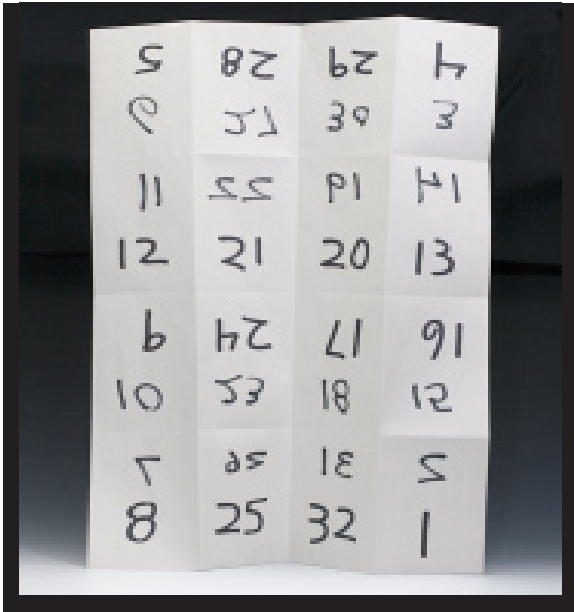 5 28 29 4
6 27 30 3
11 22 19 14
12 21 20 13
9 24 17 16
10 23 18 15
7 26 31 2
8 25 32 1